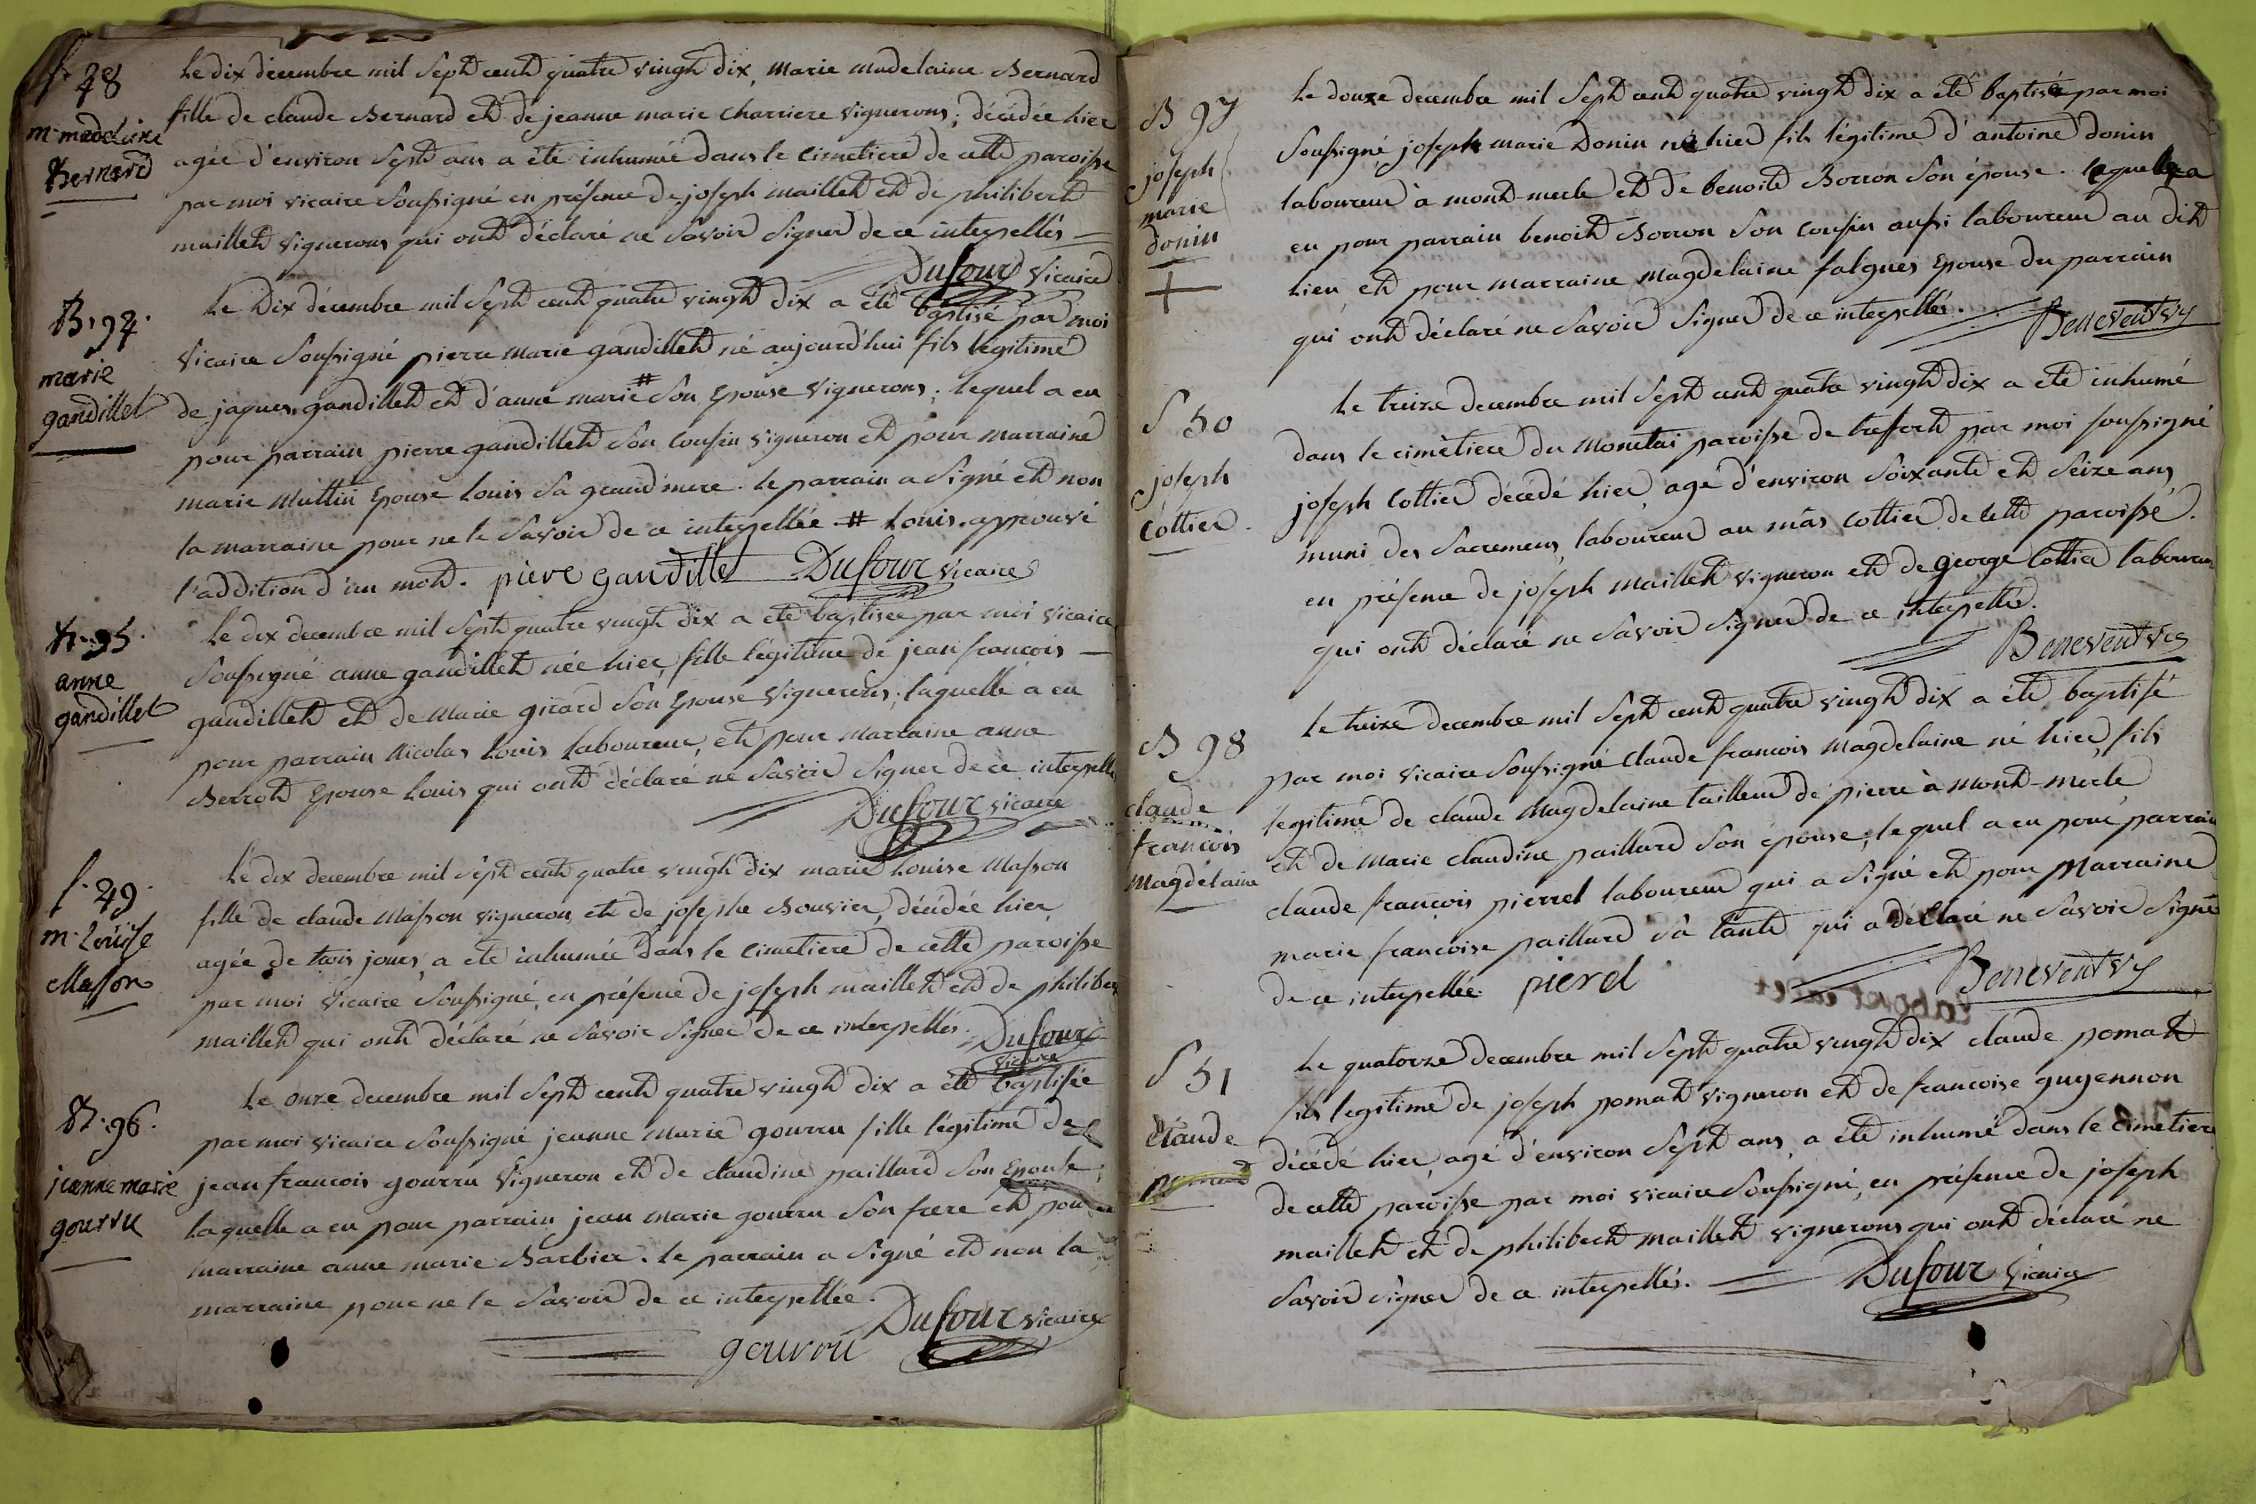 f. 48
m. madelaine
Bernard
Le dix decembre mil sept cent quatre vingt dix, marie madelaine Bernard
fille de claude Bernard et de jeanne marie charriere vignerons, décédée hier
agée d'environ sept ans a été inhumée dans le cimetiere de cette paroisse
par moi vicaire soussigné en présence de joseph maillet et de philibert
maillet vignerons qui ont déclaré ne savoir signer de ce interpellés
Dufour vicaire
B. 94.
marie
gandillet
Le Dix décembre mil sept cent quatre vingt dix a été baptisé par moi
vicaire soussigné pierre marie gandillet né aujourd'hui fils légitime
de jaques gandillet et d'anne marie # son epouse vignerons; lequel a eu
pour parrain pierre gandillet son cousin vigneron et pour marraine
marie Muttin epouse Louis sa grand'mere. le parrain a signé et non
la marraine pour ne le savoir de ce interpellée. # Louis. approuvé
l'addition d'un mot. piere gandillet Dufour vicaire
B. 95.
anne
gandillet
Le dix decembre mil sept quatre vingt dix a été baptisée par moi vicaire
soussigné anne gandillet née hier, fille légitime de jean francois
gandillet et de Marie girard son epouse vignerons; laquelle a eu
pour parrain Nicolas Louis laboureur, et pour marraine anne
Berrot epouse Louis qui ont déclaré ne savoir signer de ce interpellés
Dufour vicaire
f. 49.
m. Louise
Masson
Le dix decembre mil sept cent quatre vingt dix marie Louise Masson
fille de claude Masson vigneron et de josephe Bouvier, décédée hier
agée de trois jours, a été inhumée dans le cimetiere de cette paroisse
par moi vicaire soussigné, en présence de joseph maillet et de philibert
maillet qui ont déclaré ne savoir signer de ce interpellés. Dufour
vicaire
B. 96.
jeanne marie
gourru
Le onze decembre mil sept cent quatre vingt dix a été baptisée
par moi vicaire soussigné jeanne marie gourru fille légitime de
jean francois gourru vigneron et de claudine paillard son Epouse;
laquelle a eu pour parrain jean marie gourru son frere et pour
marraine anne marie Barbier. le parrain a signé et non la
marraine pour ne le savoir de ce interpellée.
Dufour vicaire
gourru
B 97
joseph
marie
donin
Le douze decembre mil sept cent quatre vingt dix a été baptisé par moi
soussigné joseph marie Donin né hier fils légitime d'antoine donin
laboureur à mont-merle et de benoite Borron son épouse. lequel a
eu pour parrain benoit Borron son cousin aussi laboureur au dit
lieu et pour marraine magdelaine falques epouse du parrain
qui ont déclaré ne savoir signer de ce interpellés.
Benevent vs
S 50
joseph
Cottier.
Le treize decembre mil sept cent quatre vingt dix a été inhumé
dans le cimètiere du Monetai paroisse de trefort par moi soussigné
joseph Cottier décédé hier, agé d'environ soixante et seize ans
muni des sacremens, laboureur au màs cottier de cette paroisse.
en présence de joseph maillet vigneron et de george Cottier laboureur
qui ont déclaré ne savoir signer de ce interpellés.
Benevent vs
B 98
claude
francois
Magdelaine
Le treize decembre mil sept cent quatre vingt dix a été baptisé
par moi vicaire soussigné claude francois Magdelaine né hier, fils
legitime de claude Magdelaine tailleur de pierre à Mont-merle
et de Marie claudine paillard son épouse; lequel a eu pour parrain
claude francois pierrel laboureur qui a signé et pour Marraine
marie francoise paillard sa tante qui a déclaré ne savoir signer
de ce interpellée. pierel
Benevent vs
S 51
Claude
Le quatorze decembre mil sept quatre vingt dix claude pomat
fils legitime de joseph pomat vigneron et de francoise guyennon
décédé hier, agé d'environ sept ans, a été inhumé dans le cimetiere
de cette paroisse par moi vicaire soussigné, en présence de joseph
maillet et de philibert maillet vignerons qui ont déclaré ne
savoir signer de ce interpellés.
Dufour vicaire